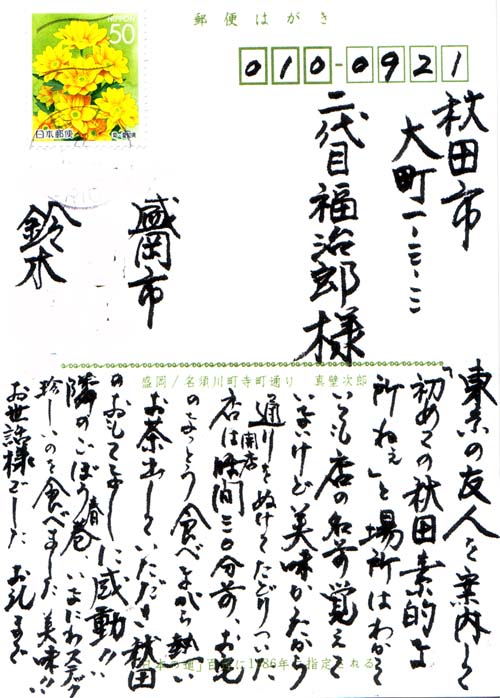 郵便はがき
NIPPON
50
日本郵便
010-0921
秋田市
大町一-三-三
二代目福治郎様
盛岡市
鈴木
盛岡/名須川町寺町通り 真壁次郎
東京の友人を案内して
「初めての秋田素的な
所ねぇ」と場所はわかって
いても店の名前覚えて
ないけど美味かったから
通りをぬけてたどりつい
店は開店時間三〇分前、お宅
のなっとう食べながら熱い
お茶出していただき秋田
のおもてなしに感動!!
隣のごぼう春巻
珍しいのを食べました美味!!
お世話様でした お礼まで
「日本の道」百選に1986年に指定される